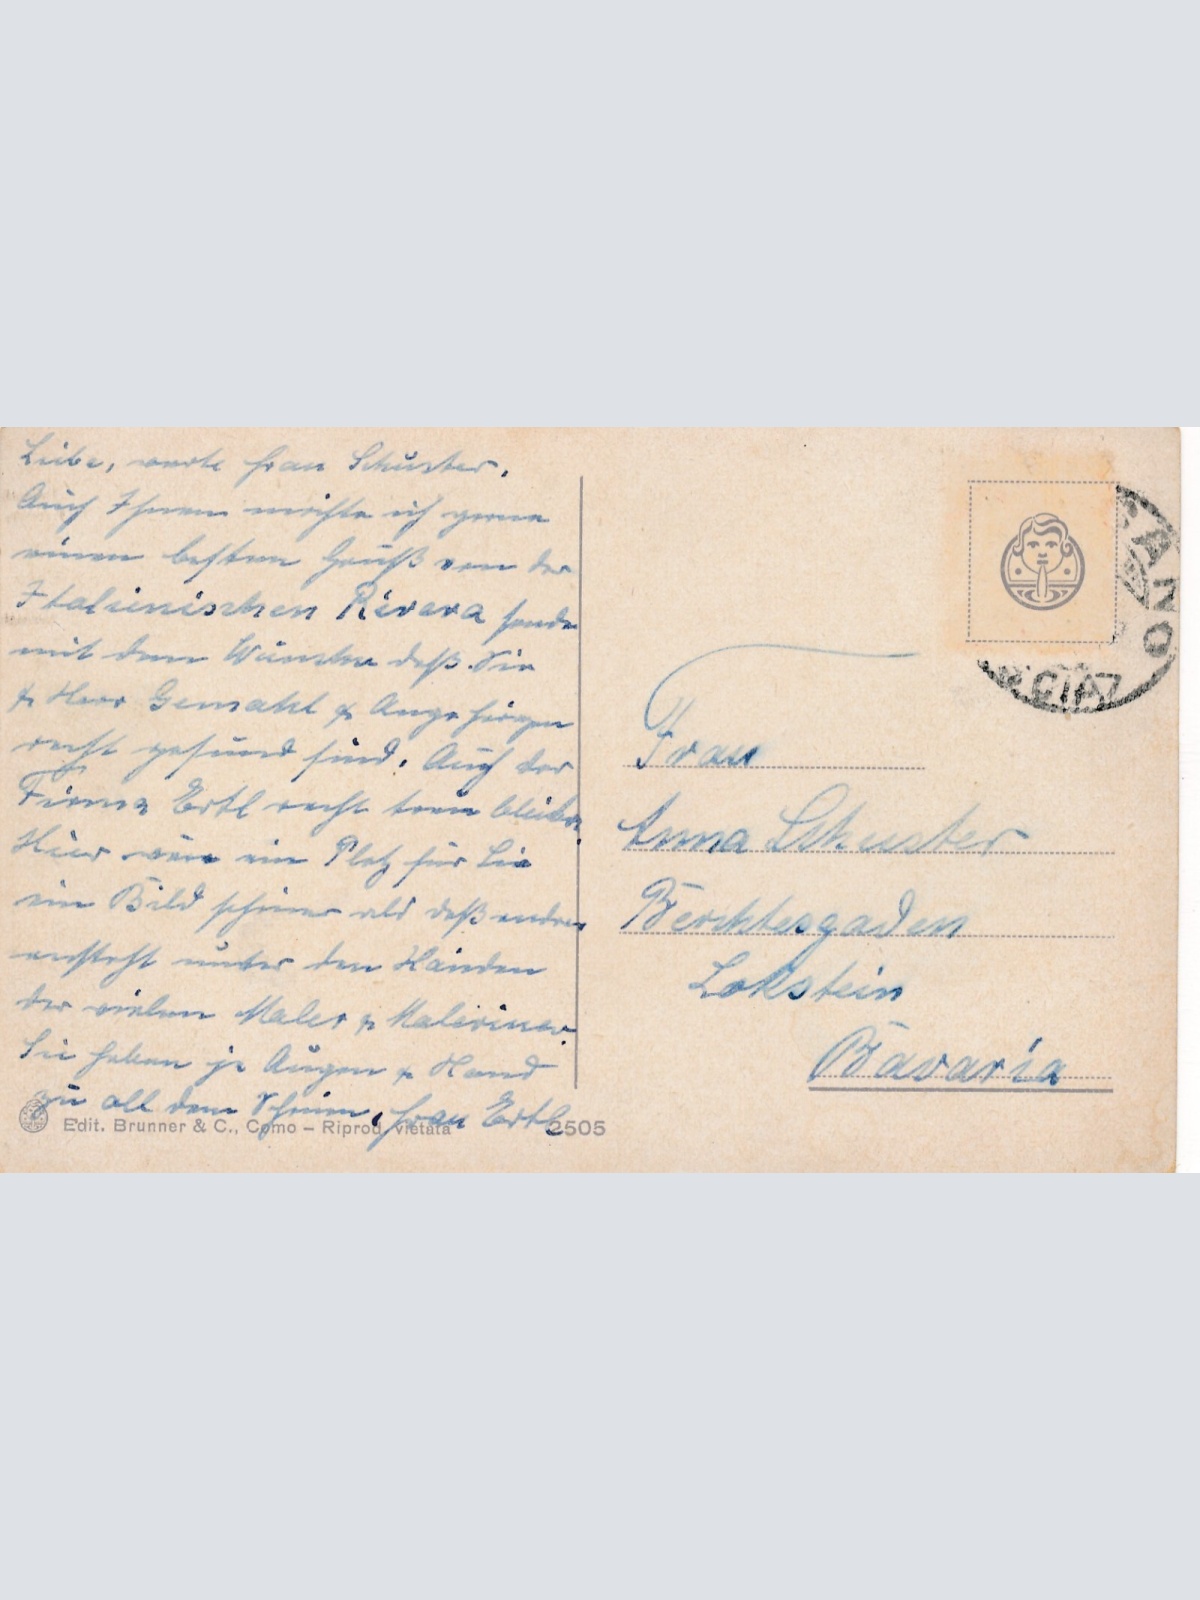 Liebe, werte Frau Schuster.
Auch Ihnen möchte ich gerne
einen besten Gruß von der
Italienischen Rivera sende
mit dem Wunsche daß Sie
& Herr Gemahl & Angehörigen
recht gesund sind. Auch der
Firma Ertl recht treu bleiben.
Hier wäre ein Platz für Sie
ein Bild schöner als daß andere
ensteht unter den Händen
der vielen Maler & Malerinen.
Sie haben ja Augen & Hand
zu all dem Schönen, Frau Ertl
Edit. Brunner & C., Como – Riprod. vietata 2505
Frau
Anna Schuster
Berchtesgaden
Lokstein
Bavaria